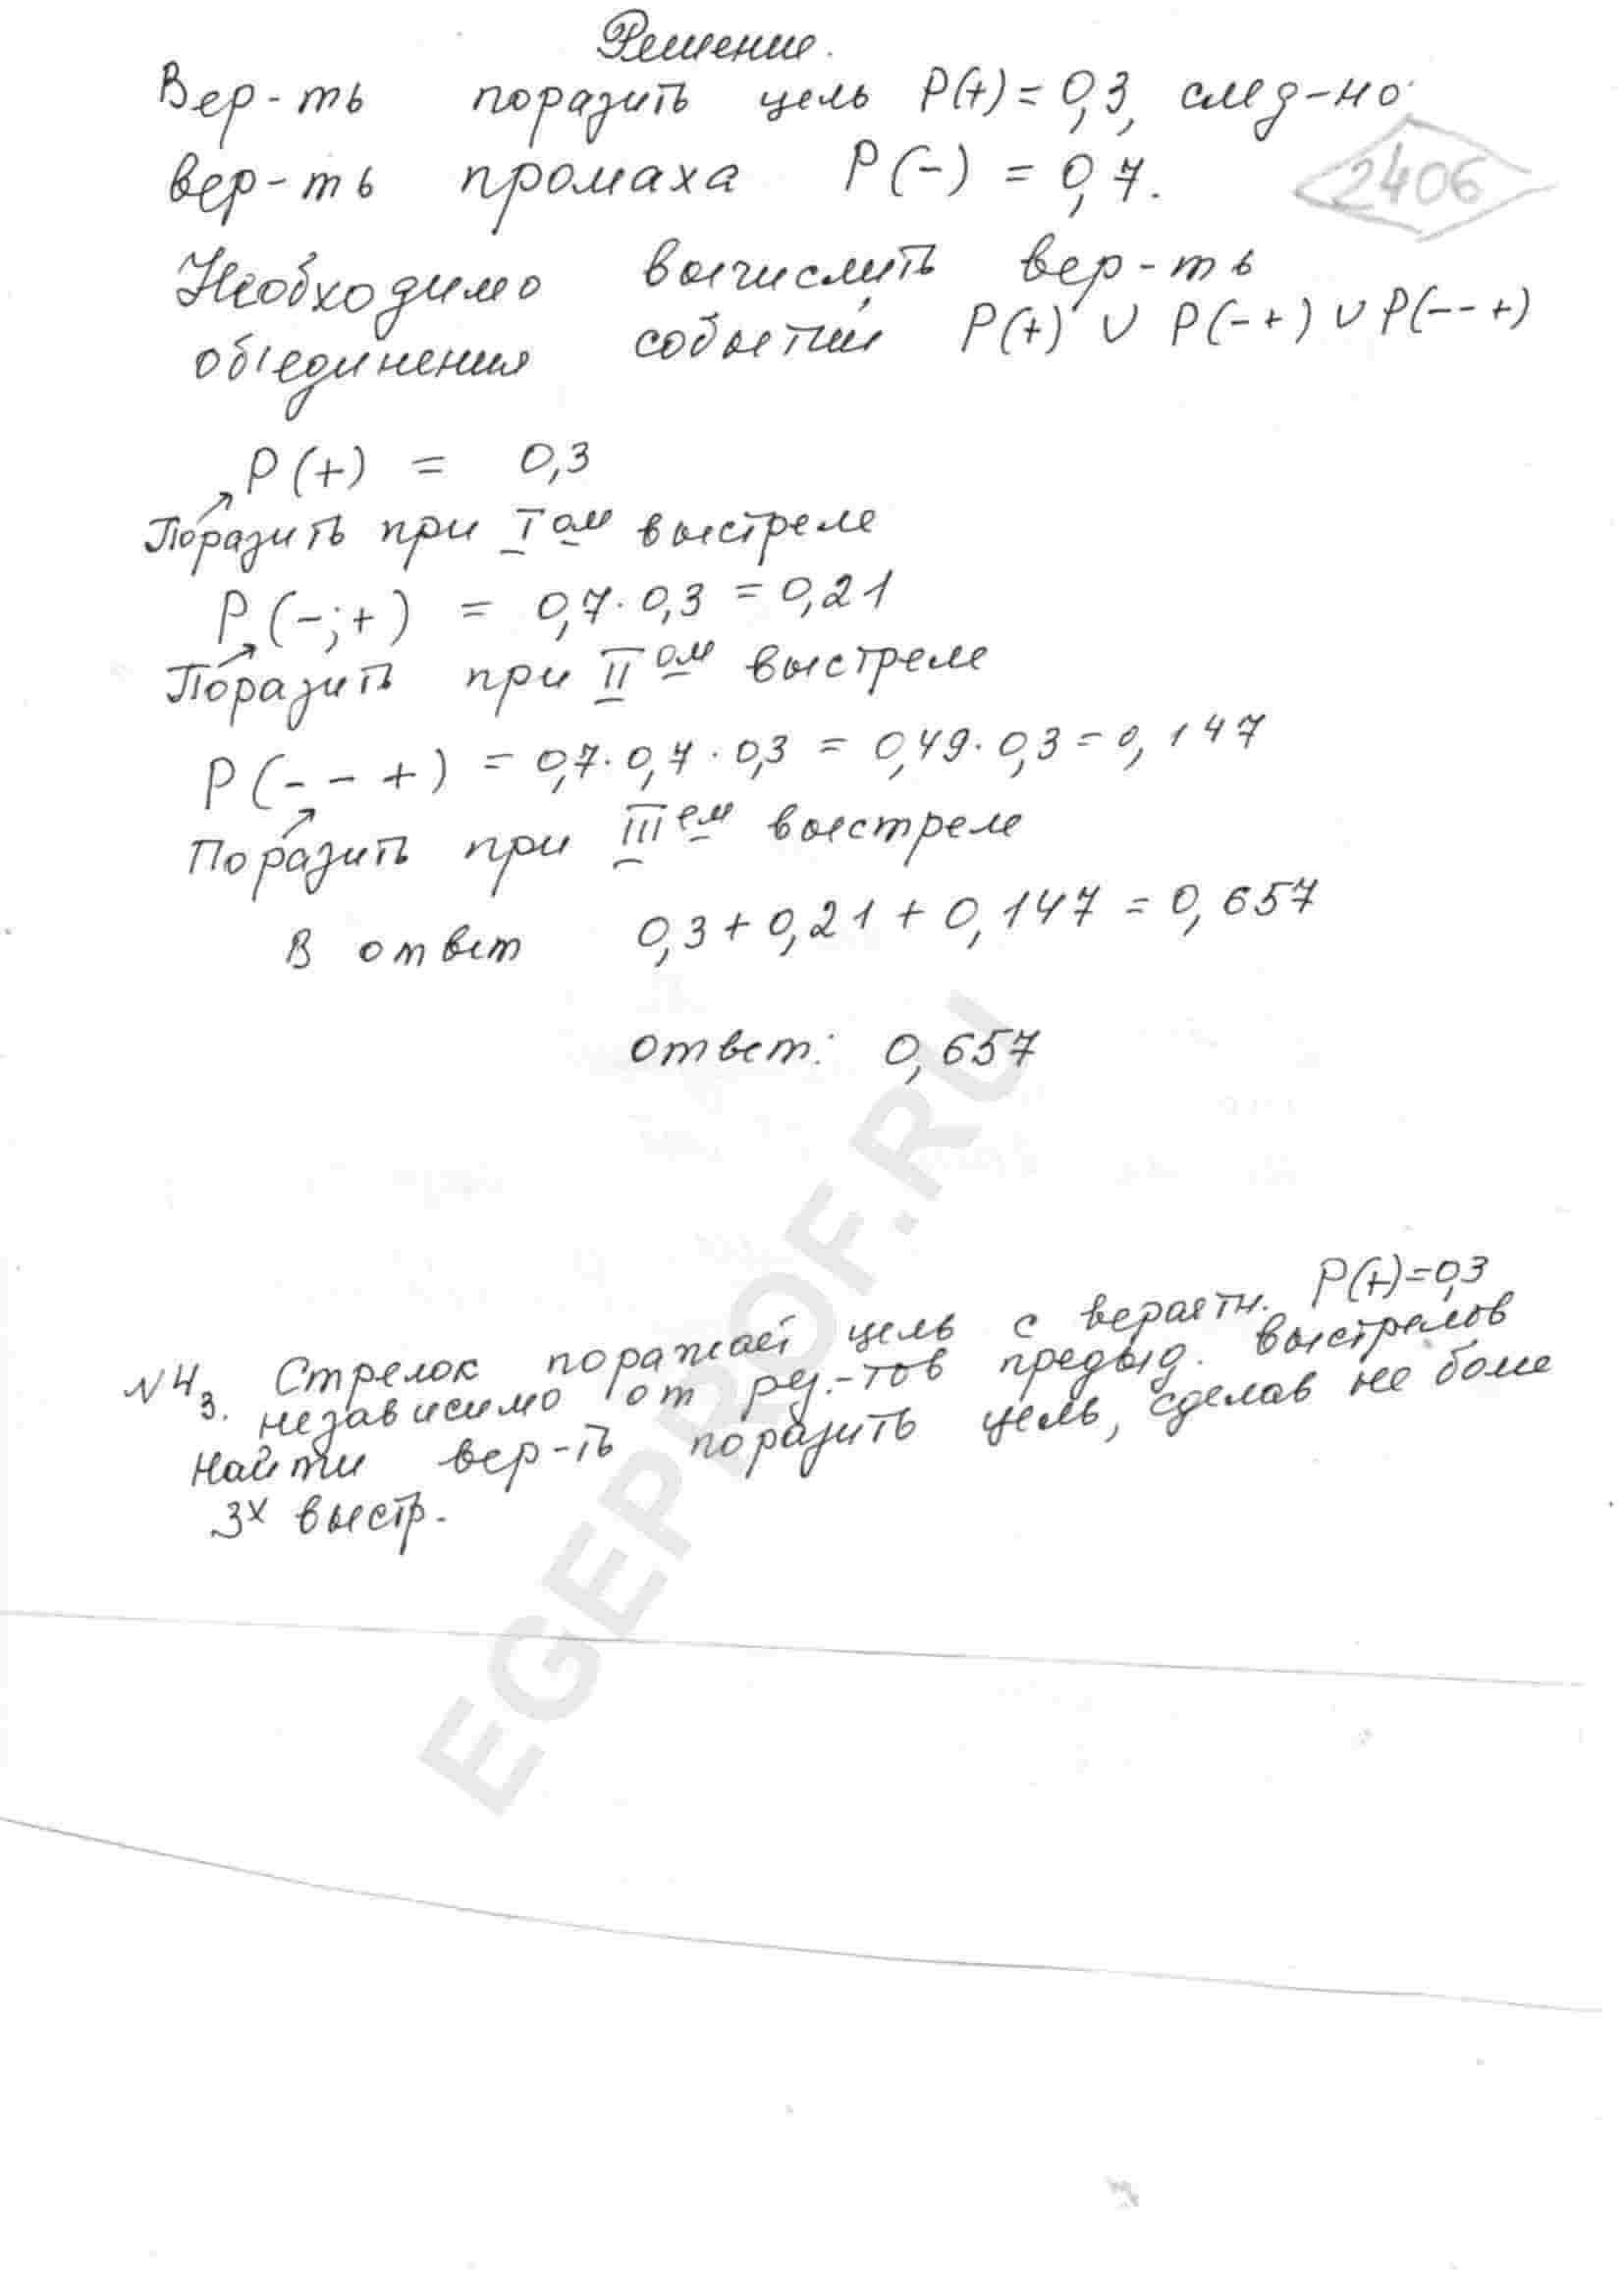 Решение.
Вер-ть поразить цель P(+) = 0,3, след-но
вер-ть промаха P(-) = 0,7.
2406
Необходимо вычислить вер-ть
объединения событий P(+) ∪ P(-+) ∪ P(--+)
P(+) = 0,3
Поразить при I ом выстреле
P(-;+) = 0,7·0,3 = 0,21
Поразить при II ом выстреле
P(--+) = 0,7·0,7·0,3 = 0,49·0,3 = 0,147
Поразить при III ем выстреле
В ответ 0,3 + 0,21 + 0,147 = 0,657
ответ: 0,657
N 4 3. Стрелок поражает цель с вераятн. P(+)=0,3
независимо от рез.-тов предыд. выстрелов
Найти вер-ть поразить цель, сделав не боле
3х выстр.
EGEPROF.RU